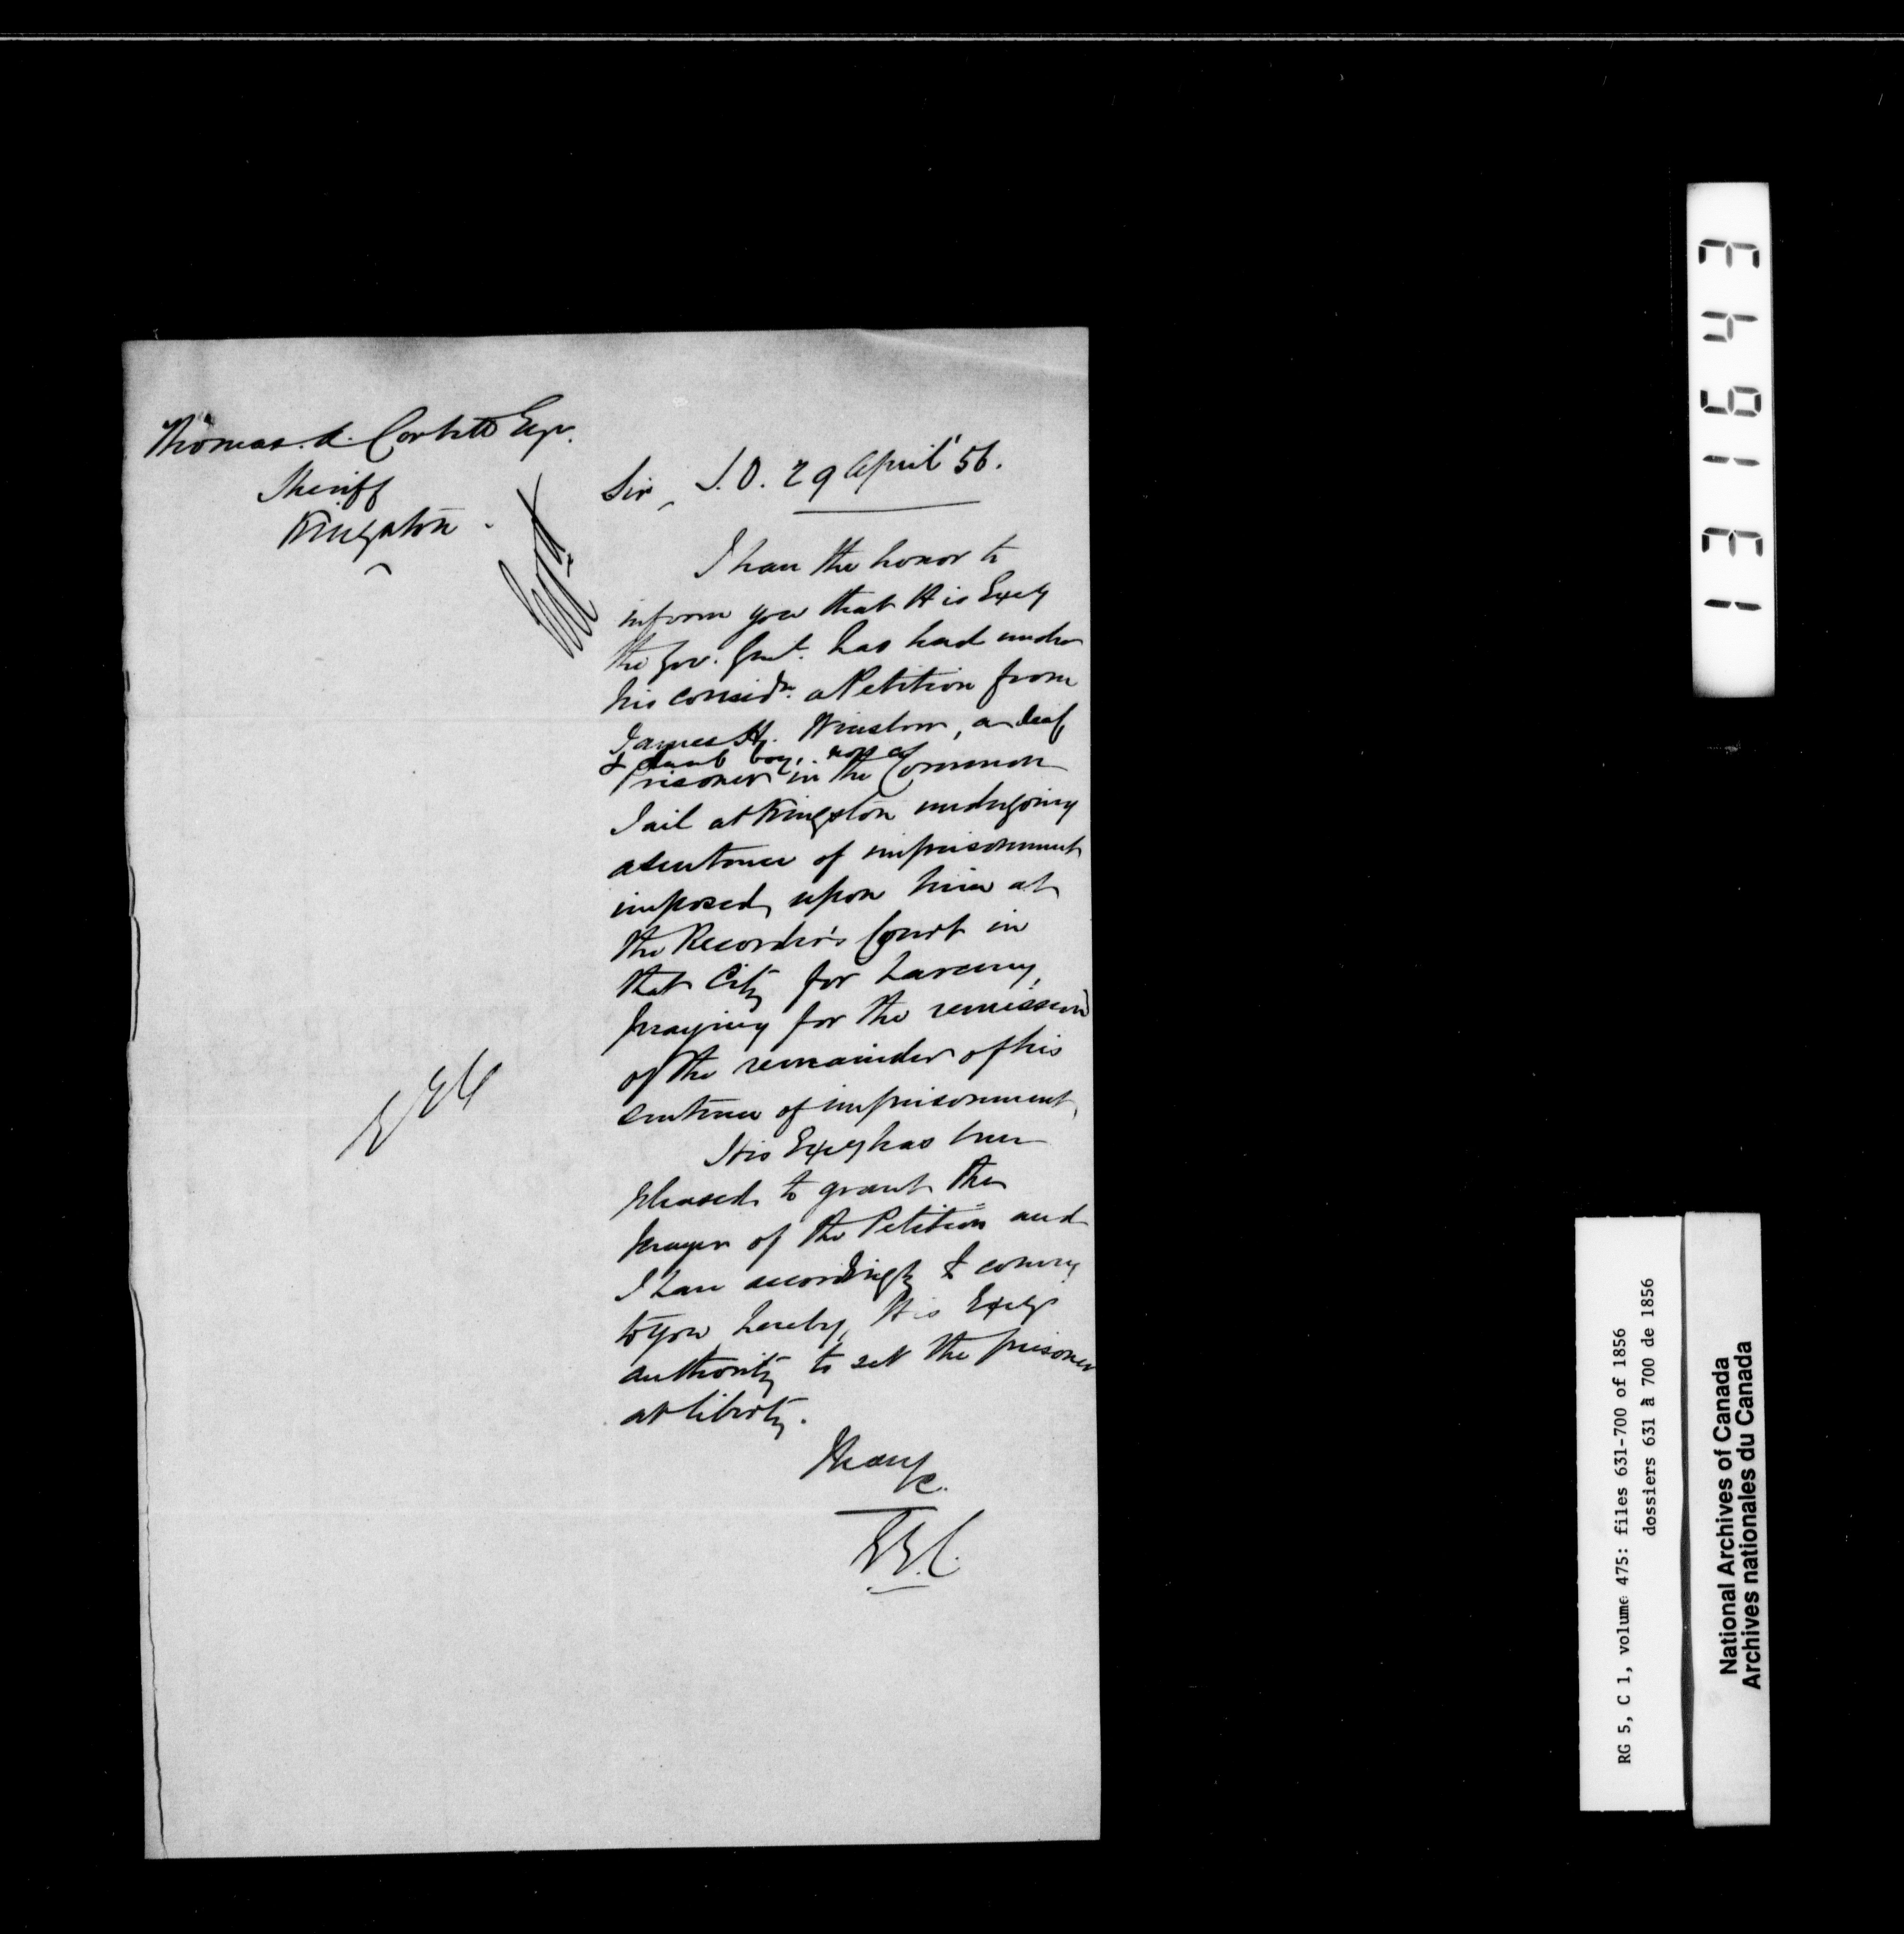 Thomas A. Corbett Esqr.
Sheriff
Kingston.
S.O. 29 April '56.
Sir,
I have the honor to
inform you that His Excy
the Gov. Genl. has had under
his considn. a Petition from
James H. Winslow, a deaf
& dumb boy, now a
Prisoner in the Common
Jail at Kingston undergoing
a sentence of imprisonment
imposed upon him at
the Recorder's Court in
that City for Larceny,
praying for the remission
of the remainder of his
sentence of imprisonment,
His Excy has been
pleased to grant the
prayer of the Petition and
I have accordingly to convey
to you hereby, His Excy's
authority to set the prisoner
at liberty.
I have &c.
131643
RG 5, C 1, volume 475: files 631-700 of 1856
dossiers 631 à 700 de 1856
National Archives of Canada
Archives nationales du Canada